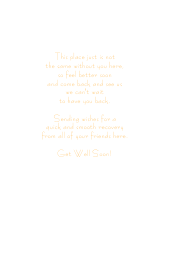 This place just is not
the same without you here,
so feel better soon
and come back and see us
we can't wait
to have you back.
Sending wishes for a
quick and smooth recovery
from all of your friends here.
Get Well Soon!